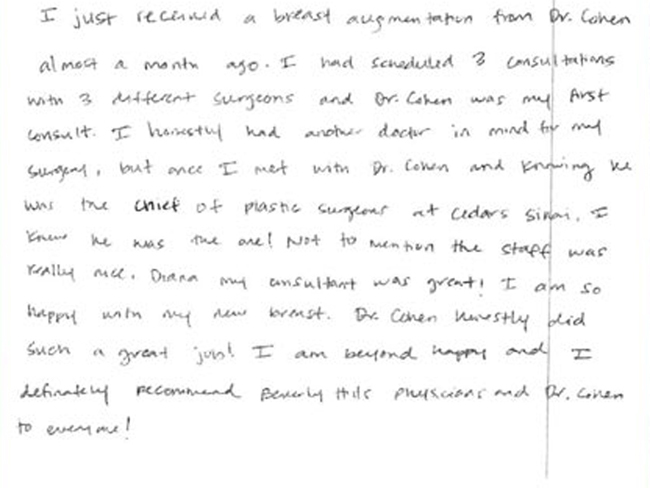 I just received a breast augmentation from Dr. Cohen
almost a month ago. I had scheduled 3 consultations
with 3 different surgeons and Dr. Cohen was my first
consult. I honestly had another doctor in mind for my
surgery, but once I met with Dr. Cohen and knowing he
was the chief of plastic surgeons at Cedars Sinai, I
knew he was the one! Not to mention the staff was
really nice. Diana my consultant was great! I am so
happy with my new breast. Dr. Cohen honestly did
such a great job! I am beyond happy and I
definately recommend Beverly Hills Physicians and Dr. Cohen
to everyone!